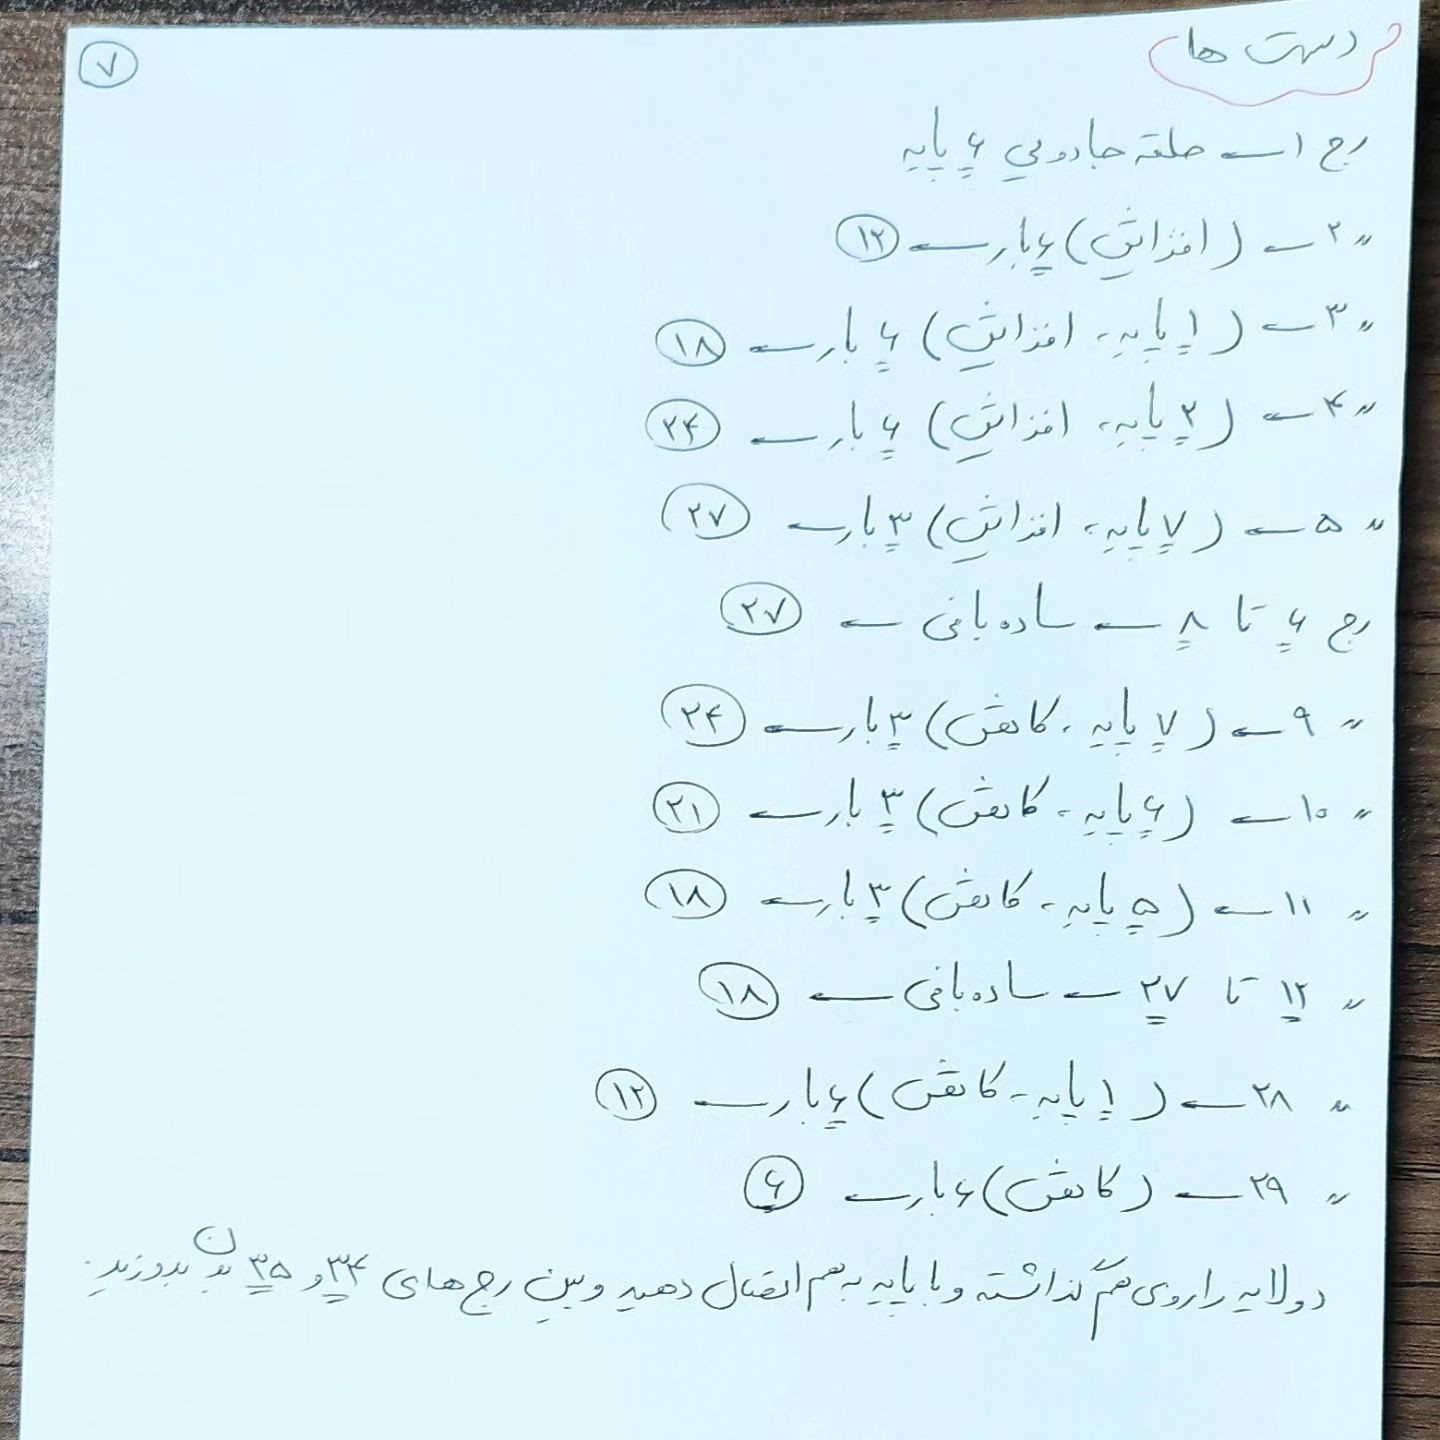 دست ها
۷
رج ۱ ← حلقه جادویی ۶ پایه
〃 ۲ ← (افزایش) ۶ بار ← ۱۲
〃 ۳ ← (۱ پایه، افزایش) ۶ بار ← ۱۸
〃 ۴ ← (۲ پایه، افزایش) ۶ بار ← ۲۴
〃 ۵ ← (۷ پایه، افزایش) ۳ بار ← ۲۷
رج ۶ تا ۸ ← ساده بافی ← ۲۷
〃 ۹ ← (۷ پایه، کاهش) ۳ بار ← ۲۴
〃 ۱۰ ← (۶ پایه، کاهش) ۳ بار ← ۲۱
〃 ۱۱ ← (۵ پایه، کاهش) ۳ بار ← ۱۸
〃 ۱۲ تا ۲۷ ← ساده بافی ← ۱۸
〃 ۲۸ ← (۱ پایه، کاهش) ۶ بار ← ۱۲
〃 ۲۹ ← (کاهش) ۶ بار ← ۶
دو لایه را روی هم گذاشته و با پایه به هم اتصال دهید و بین رج های ۳۴ و ۳۵ بدن بدوزید.